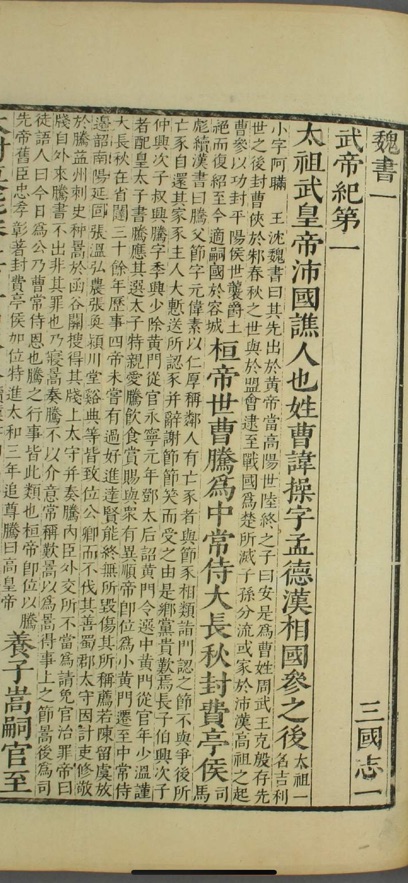 魏書一　三國志一
武帝紀第一
太祖武皇帝沛國譙人也姓曹諱操字孟德漢相國參之後太祖一名吉利
小字阿瞞　王沈魏書曰其先出於黃帝當高陽世陸終之子曰安是爲曹姓周武王克殷存先
世之後封曹俠於邾春秋之世與於盟會逮至戰國爲楚所滅子孫分流或家於沛漢高祖之起
曹參以功封平陽侯世襲爵土
絕而復紹至今適嗣國於容城
桓帝世曹騰爲中常侍大長秋封費亭侯司馬
彪續漢書曰騰父節字元偉素以仁厚稱鄰人有亡豕者與節豕相類詣門認之節不與爭後所
亡豕自還其家豕主人大慙送所認豕并辭謝節節笑而受之由是鄉黨貴歎焉長子伯興次子
仲興次子叔興騰字季興少除黃門從官永寧元年鄧太后詔黃門令選中黃門從官年少溫謹
者配皇太子書騰應其選太子特親愛騰飲食賞賜與衆有異順帝卽位爲小黃門遷至中常侍
大長秋在省闥三十餘年歷事四帝未嘗有過好進達賢能終無所毀傷其所稱薦若陳留虞放
邊韶南陽延固張溫弘農張奐潁川堂谿典等皆致位公卿而不伐其善蜀郡太守因計吏修敬
於騰益州刺史种暠於函谷關搜得其牋上太守并奏騰內臣外交所不當爲請免官治罪帝曰
牋自外來騰書不出非其罪也乃寢暠奏騰不以介意常稱歎暠以爲暠得事上之節暠後爲司
徒語人曰今日爲公乃曹常侍恩也騰之行事皆此類也桓帝卽位以騰
先帝舊臣忠孝彰著封費亭侯加位特進太和三年追尊騰曰高皇帝
養子嵩嗣官至